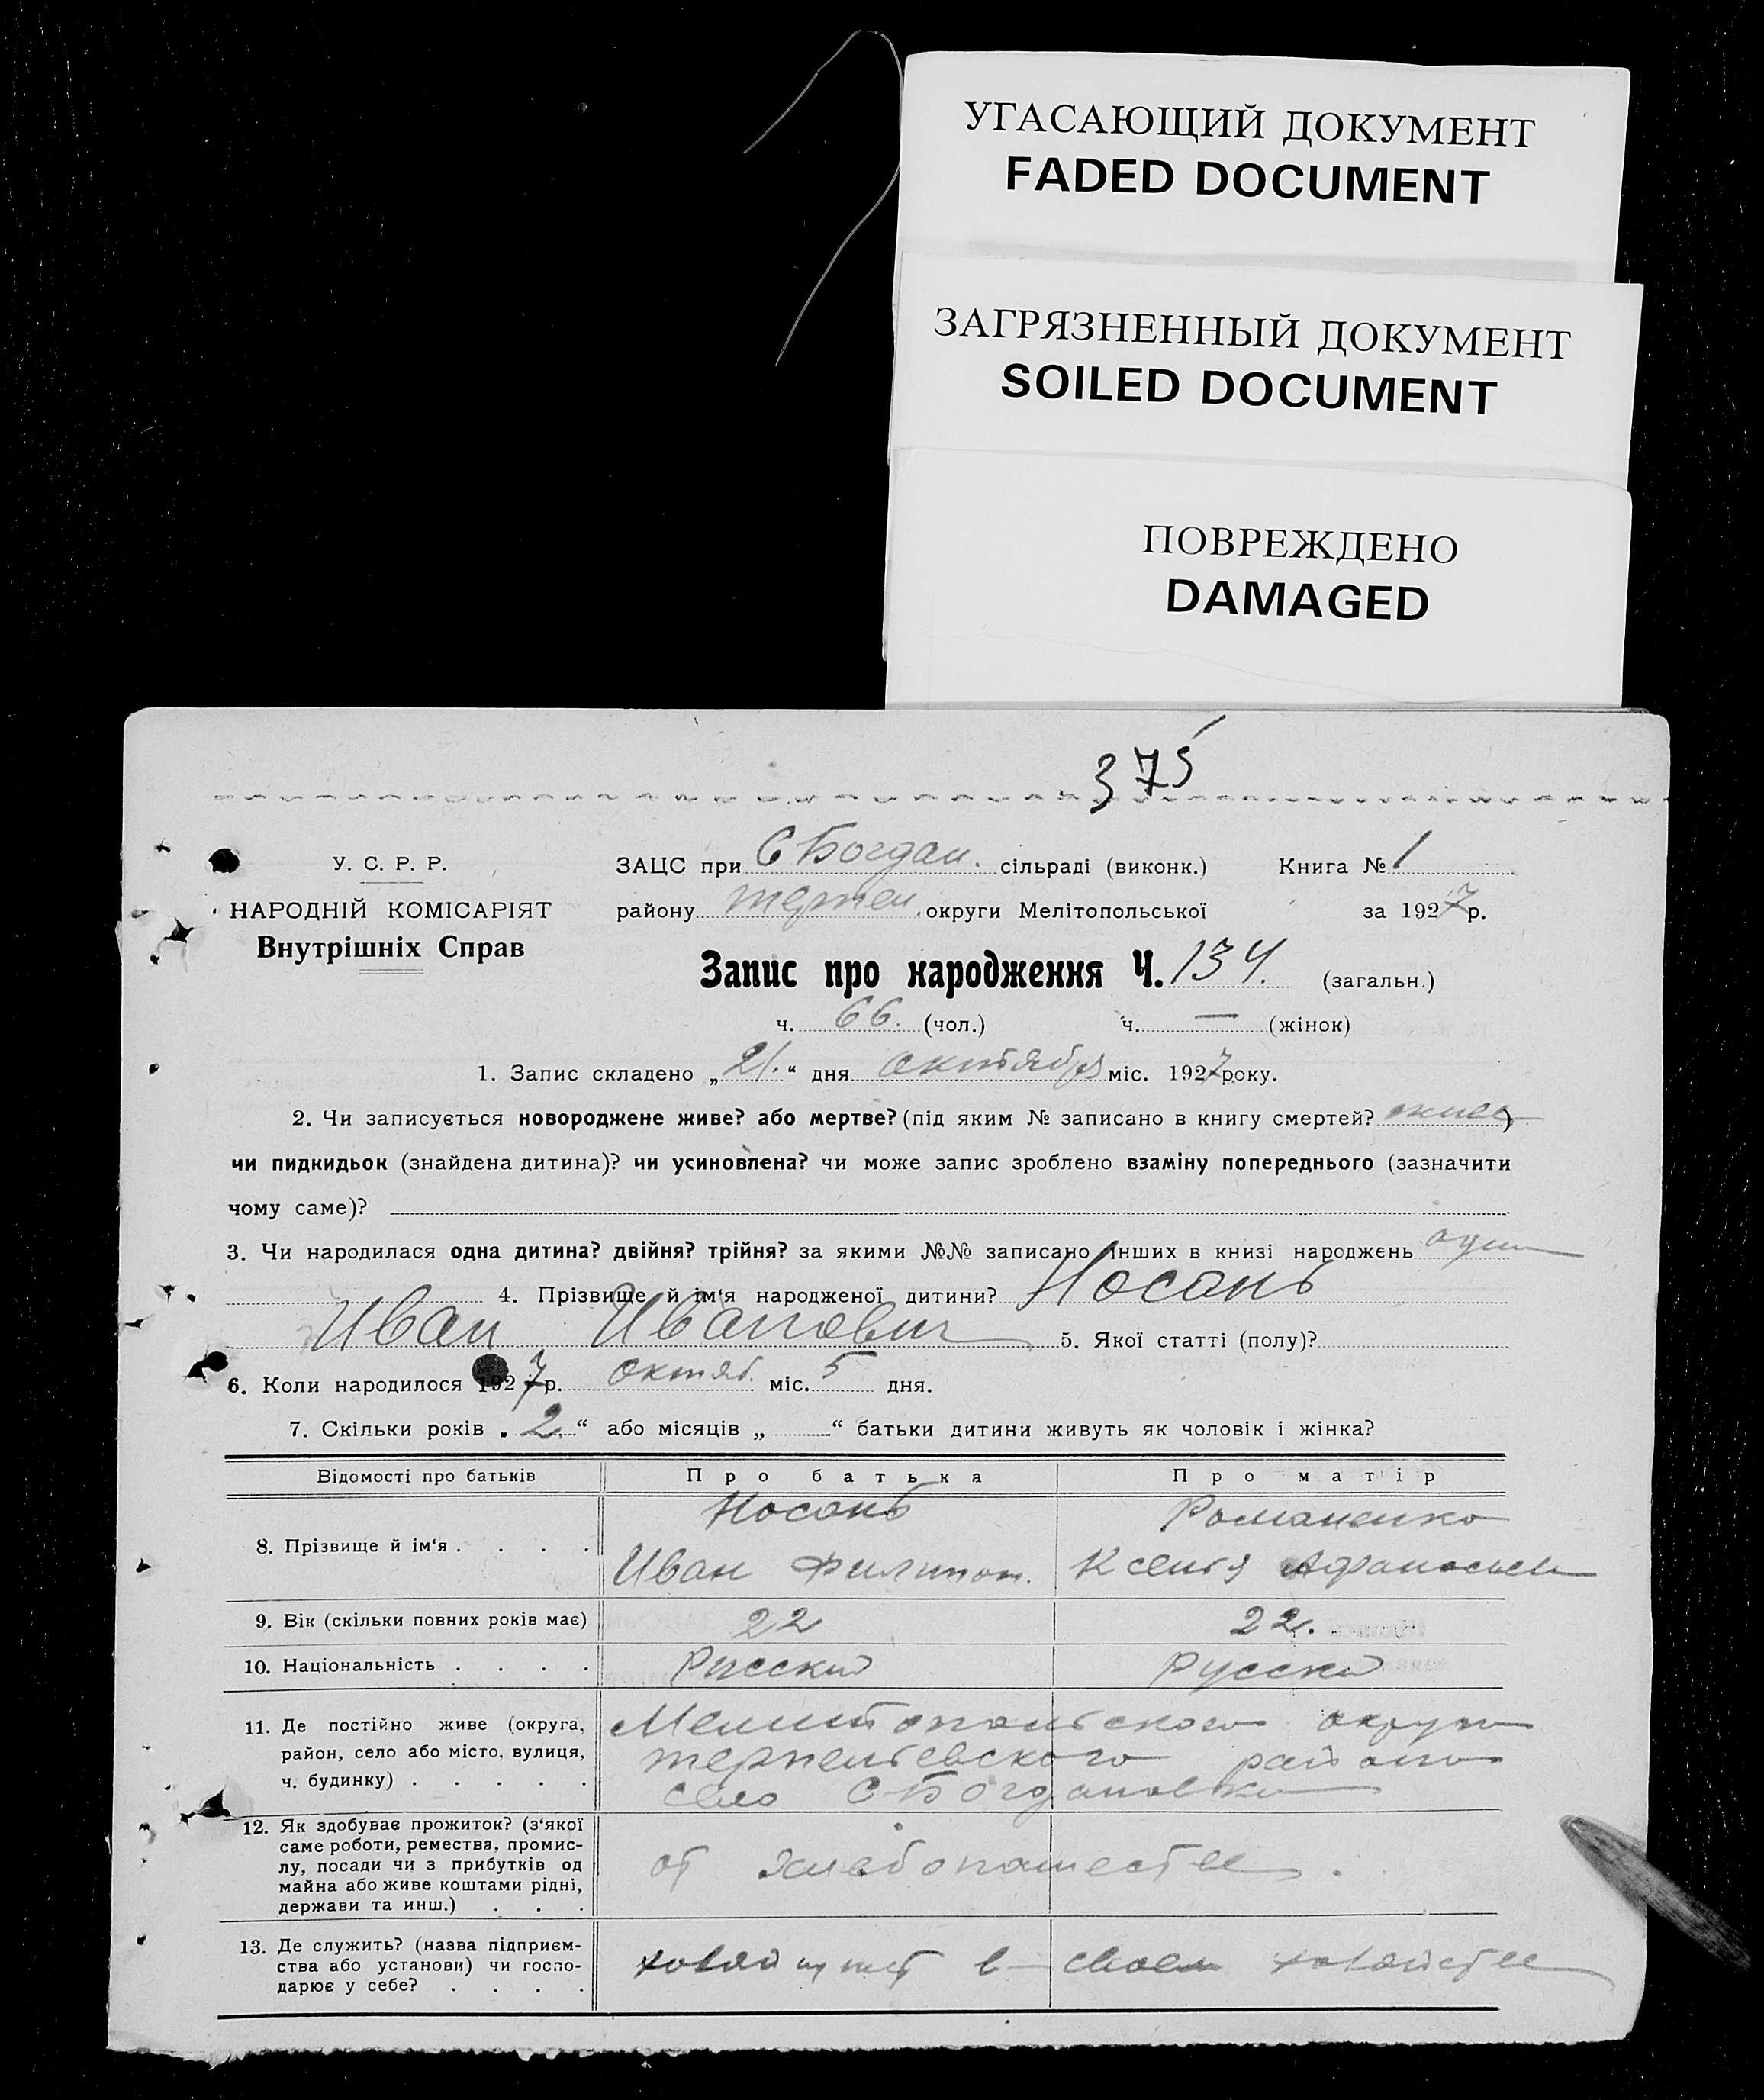 УГАСАЮЩИЙ ДОКУМЕНТ
FADED DOCUMENT
ЗАГРЯЗНЕННЫЙ ДОКУМЕНТ
SOILED DOCUMENT
ПОВРЕЖДЕНО
DAMAGED
375
У. С. Р. Р.
НАРОДНІЙ КОМІСАРІЯТ
Внутрішніх Справ
ЗАЦС при С Богдан. сільраді (виконк.) Книга № 1
району Терпен. округи Мелітопольської за 1927 р.
Запис про народження Ч. 134. (загальн.)
ч. 66. (чол.) ч. — (жінок)
1. Запис складено „21.“ дня октября міс. 1927 року.
2. Чи записується новороджене живе? або мертве? (під яким № записано в книгу смертей? живое)
чи пидкидьок (знайдена дитина)? чи усиновлена? чи може запис зроблено взаміну попереднього (зазначити
чому саме)?
3. Чи народилася одна дитина? двійня? трійня? за якими №№ записано інших в книзі народжень один
4. Прізвище й ім‘я народженої дитини? Носань
Иван Иванович 5. Якої статті (полу)?
6. Коли народилося 1927 р. октяб. міс. 5 дня.
7. Скільки років „2“ або місяців „ “ батьки дитини живуть як чоловік і жінка?
Відомості про батьків Про батька Про матір
8. Прізвище й ім‘я . . . . Носань Романенко
Иван Филипов. Ксения Афанасьев
9. Вік (скільки повних років має) 22 22.
10. Національність . . . . Русский Русская
11. Де постійно живе (округа, район, село або місто, вулиця, ч. будинку) . . . . .
Мелитопольского округа
терпеньевского района
село С Богдановка
12. Як здобуває прожиток? (з‘якої
саме роботи, ремества, промис-
лу, посади чи з прибутків од
майна або живе коштами рідні,
держави та инш.) . . .
от хлебопашества.
13. Де служить? (назва підприєм-
ства або установи) чи госпо-
дарює у себе? . . . .
хозяйнует в своем хозяйстве